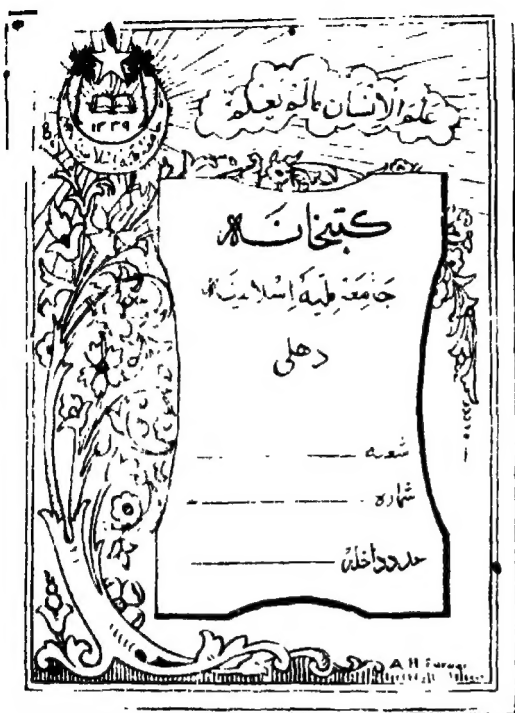 عَلَّمَ الْإِنْسَانَ مَا لَمْ يَعْلَمْ
۱۳۳۹
کتبخانہ
جَامِعَہ مِلّیَہ اِسْلَامِیَہ
دھلی
شعبہ
شمارہ
عدد داخلہ
A H Faruqi